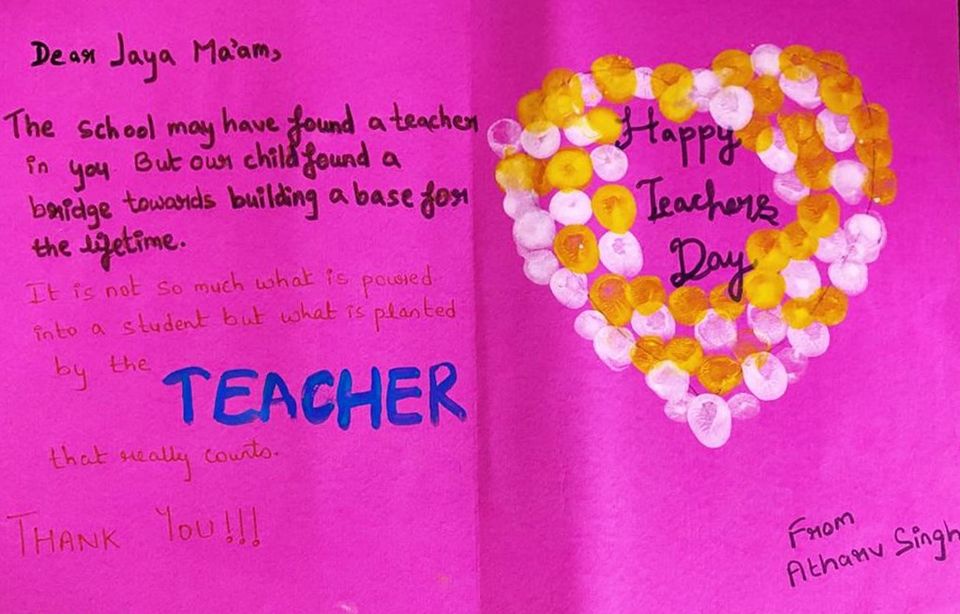 Dear Jaya Ma'am,
The school may have found a teacher
in you But our child found a
bridge towards building a base for
the lifetime.
It is not so much what is poured
into a student but what is planted
by the TEACHER
that really counts.
THANK YOU!!!
Happy
Teachers
Day
From
Atharv Singh